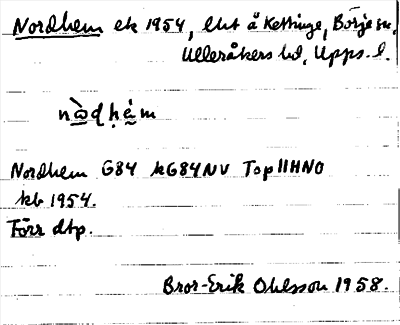 Nordhem ek 1954, lht å Ketslinge, Börje sn,
Ulleråkers hd, Upps. l.
nạ̀dḥẹ́m
Nordhem G84 kG84NV Top11HNO
kb 1954.
Förr dtp.
Bror-Erik Ohlsson 1958.